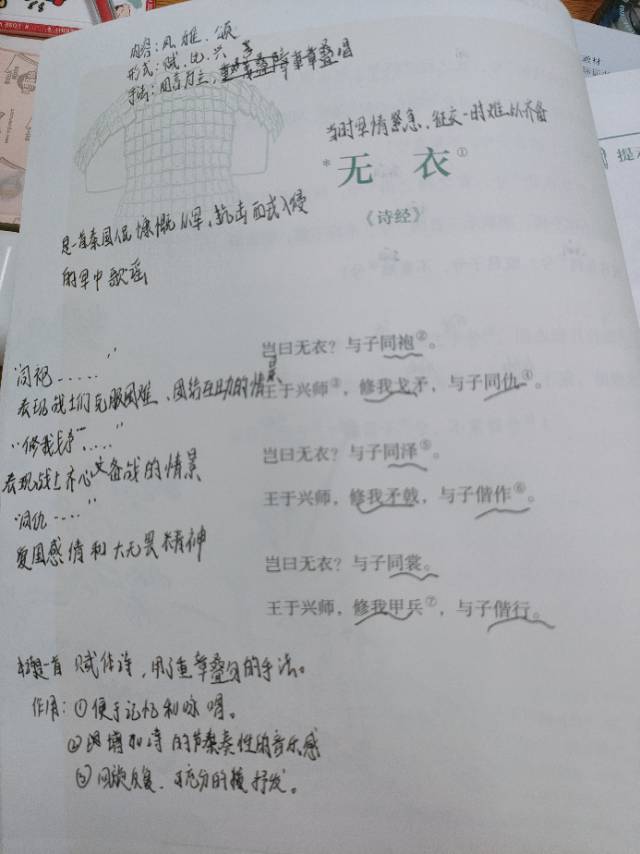 内容：风、雅、颂
形式：赋、比、兴
手法：四言为主，重章叠唱
当时军情紧急，征衣一时难以齐备
*无 衣①
《诗经》
是一首秦国人民慷慨从军，抗击西戎入侵
的军中歌谣
岂曰无衣？与子同袍②。
王于兴师③，修我戈矛，与子同仇④。
岂曰无衣？与子同泽⑤。
王于兴师，修我矛戟，与子偕作⑥。
岂曰无衣？与子同裳。
王于兴师，修我甲兵⑦，与子偕行。
"同袍……"
表现战士们克服困难、团结互助的情景
"修我戈矛……"
表现战士齐心备战的情景
"同仇……"
爱国感情和大无畏精神
一首赋体诗，用了重章叠句的手法。
作用：①便于记忆和咏唱。
②增加诗的节奏性的音乐感
③回旋反复、充分的抒发。
提
教材